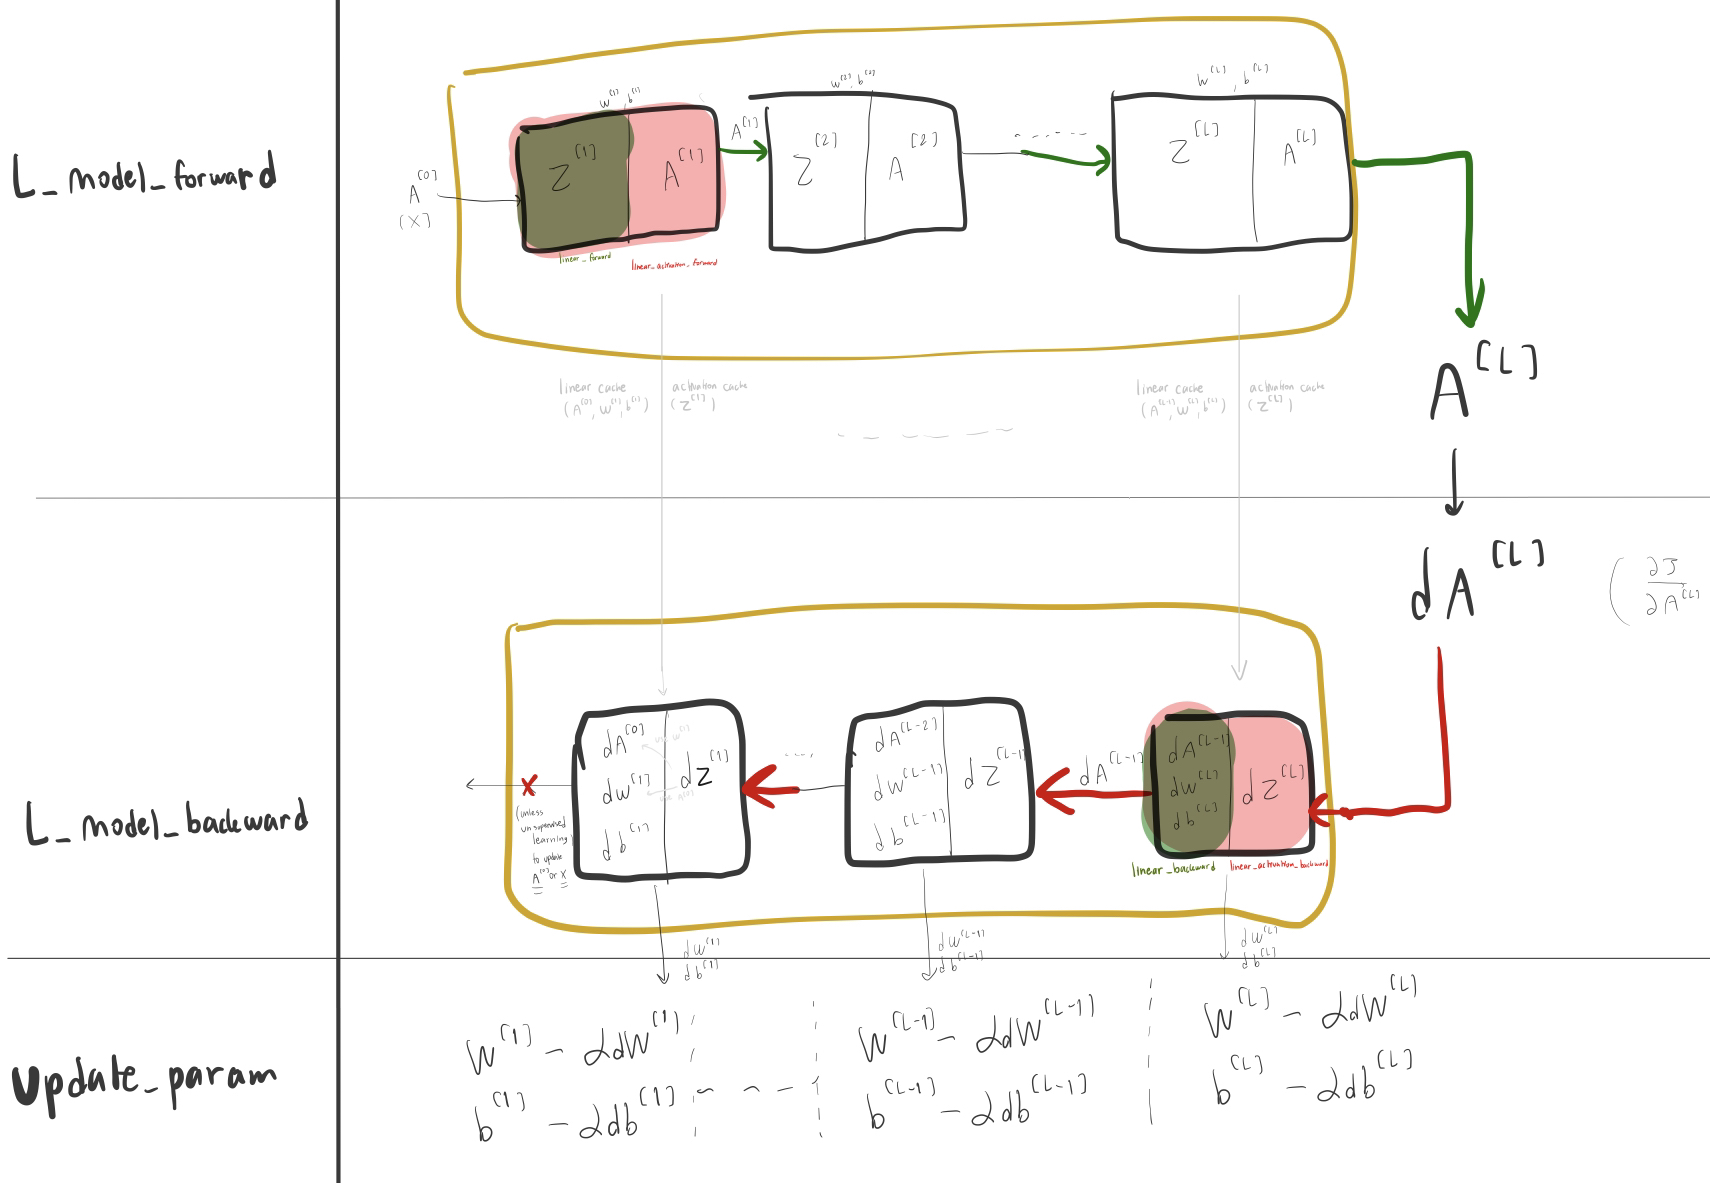 L_model_forward
A[0]
(X)
W[1], b[1]
Z[1]
A[1]
linear_forward
linear_activation_forward
A[1]
W[2], b[2]
Z[2]
A[2]
W[L], b[L]
Z[L]
A[L]
linear cache
(A[0], W[1], b[1])
activation cache
(Z[1])
linear cache
(A[L-1], W[L], b[L])
activation cache
(Z[L])
A[L]
dA[L]
( ∂J
∂A[L]
L_model_backward
(unless
unsupervised
learning)
to update
A[0] or X
dA[0]
dW[1]
db[1]
dZ[1]
use W[1]
use A[0]
dA[L-2]
dW[L-1]
db[L-1]
dZ[L-1]
dA[L-1]
dA[L-1]
dW[L]
db[L]
dZ[L]
linear_backward
linear_activation_backward
dW[1]
db[1]
dW[L-1]
db[L-1]
dW[L]
db[L]
update_param
W[1] - αdW[1]
b[1] - αdb[1]
W[L-1] - αdW[L-1]
b[L-1] - αdb[L-1]
W[L] - αdW[L]
b[L] - αdb[L]